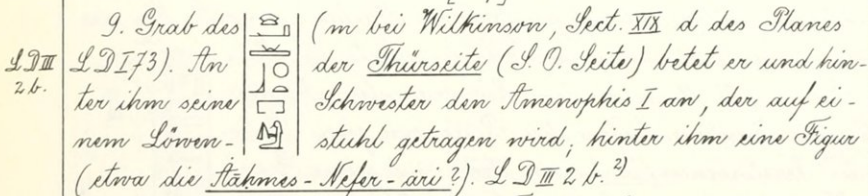 9. Grab des (m bei Wilkinson, Sect. XIX d des Planes
L D III L D I 73). An der Thürseite (S. O. Seite) betet er und hin-
2 b. ter ihm seine Schwester den Amenophis I an, der auf ei-
nem Löwen- stuhl getragen wird; hinter ihm eine Figur
(etwa die Aāhmes-Nefer-āri?). L D III 2 b. 2)